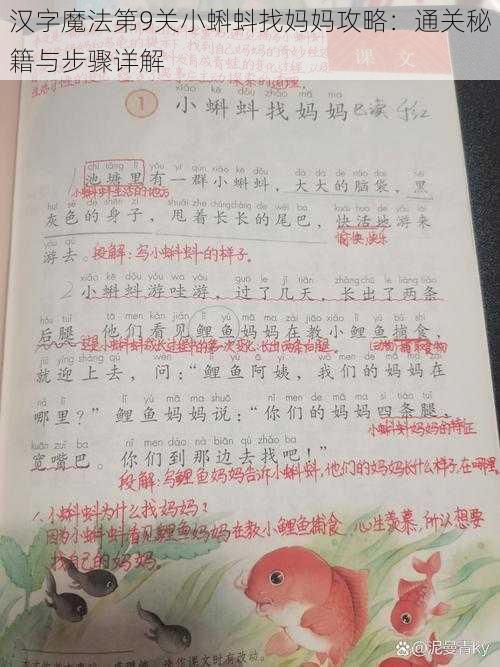 汉字魔法第9关小蝌蚪找妈妈攻略：通关秘
籍与步骤详解
课文
1 小蝌蚪找妈妈 已读
chí táng lǐ yǒu yì qún xiǎo kē dǒu dà dà de nǎo dai hēi
池塘里有一群小蝌蚪，大大的脑袋，黑
小蝌蚪生活的地方
huī sè de shēn zi shuǎi zhe cháng cháng de wěi ba kuài huó de yóu lái
灰色的身子，甩着长长的尾巴，快活地游来
愉快、快乐
yóu qù
游去。
段解：写小蝌蚪的样子。
2
xiǎo kē dǒu yóu wa yóu guò le jǐ tiān zhǎng chū le liǎng tiáo
小蝌蚪游哇游，过了几天，长出了两条
hòu tuǐ tā men kàn jiàn lǐ yú mā ma zài jiāo xiǎo lǐ yú bǔ shí
后腿。他们看见鲤鱼妈妈在教小鲤鱼捕食，
这是小蝌蚪成长过程的第一次变化：长出两条后腿
jiù yíng shàng qù wèn lǐ yú ā yí wǒ men de mā ma zài
就迎上去，问：“鲤鱼阿姨，我们的妈妈在
nǎ lǐ lǐ yú mā ma shuō nǐ men de mā ma sì tiáo tuǐ
哪里？”鲤鱼妈妈说：“你们的妈妈四条腿，
小蝌蚪妈妈的特征
kuān zuǐ ba nǐ men dào nà biān qù zhǎo ba
宽嘴巴。你们到那边去找吧！”
段解：写鲤鱼妈妈告诉小蝌蚪，他们的妈妈长什么样子，在哪里
小蝌蚪为什么找妈妈？
因为小蝌蚪看见鲤鱼妈妈在教小鲤鱼捕食，心生羡慕，所以想要
找自己的妈妈。
课文时有改动。
Bai百家号@泥曼青ky